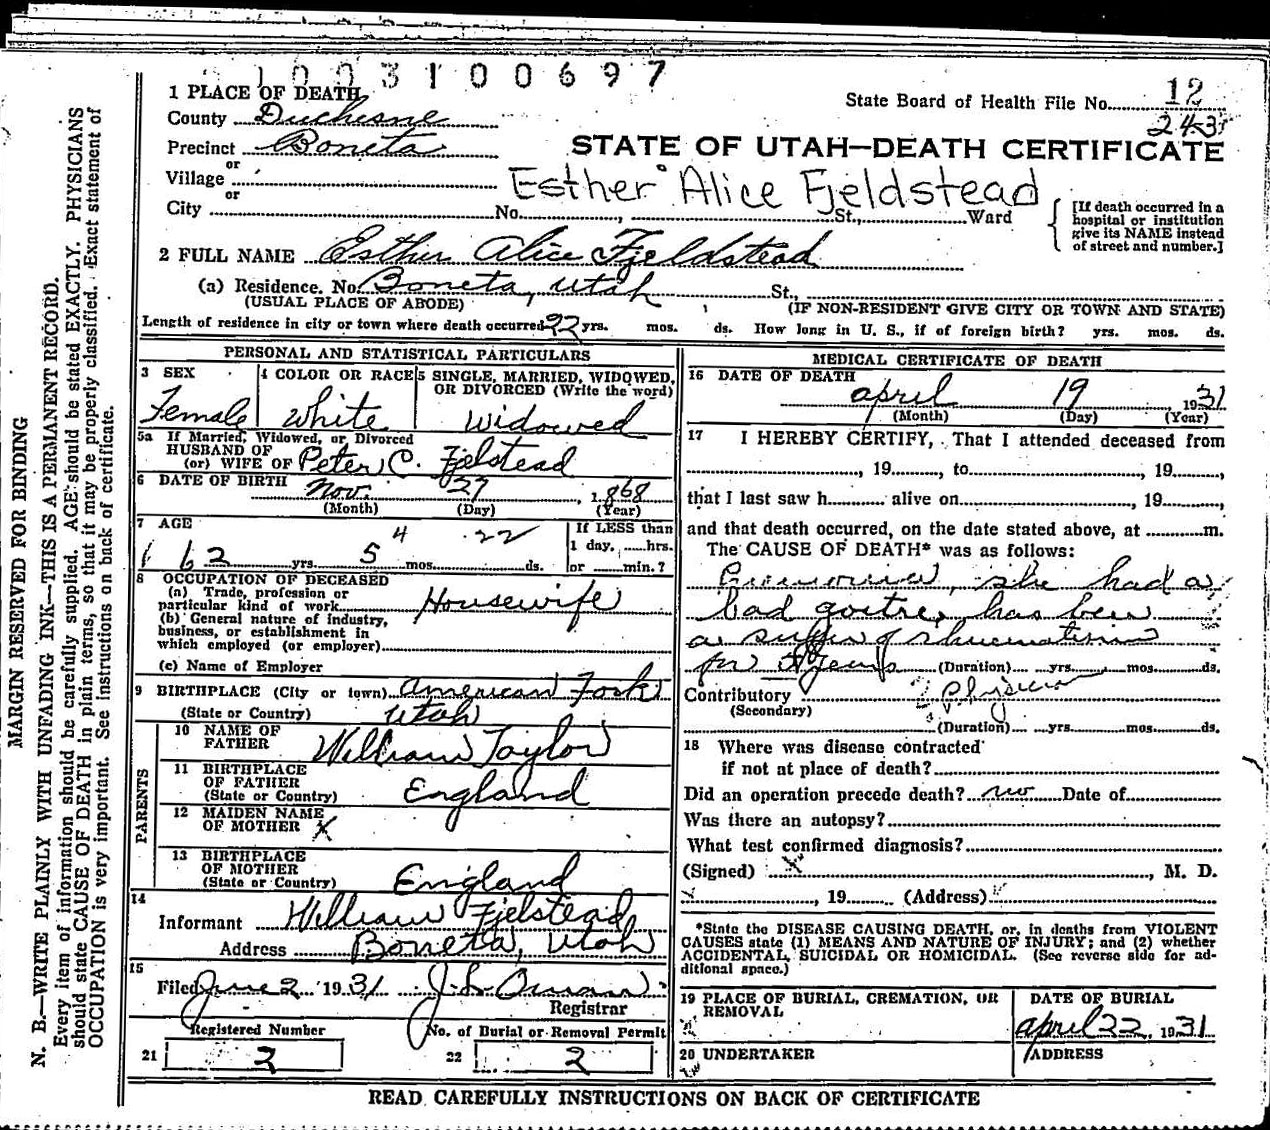 1003100697
1 PLACE OF DEATH
State Board of Health File No. 12
County Duchesne
243
Precinct Boneta
STATE OF UTAH—DEATH CERTIFICATE
or
Village
Esther Alice Fjeldstead
or
City No. , St., Ward
[If death occurred in a
hospital or institution
give its NAME instead
of street and number.]
2 FULL NAME Esther Alice Fjeldstead
(a) Residence. No. Boneta, Utah St.,
(USUAL PLACE OF ABODE) (IF NON-RESIDENT GIVE CITY OR TOWN AND STATE)
Length of residence in city or town where death occurred 22 yrs. mos. ds. How long in U. S., if of foreign birth? yrs. mos. ds.
PERSONAL AND STATISTICAL PARTICULARS
3 SEX
Female
4 COLOR OR RACE
White
5 SINGLE, MARRIED, WIDOWED,
OR DIVORCED (Write the word)
Widowed
5a If Married, Widowed, or Divorced
HUSBAND OF
(or) WIFE OF Peter C. Fjelstead
6 DATE OF BIRTH Nov. 27, 1868
(Month) (Day) (Year)
7 AGE
4 22
62 yrs. 5 mos. ds.
If LESS than
1 day, hrs.
or min.?
8 OCCUPATION OF DECEASED
(a) Trade, profession or
particular kind of work Housewife
(b) General nature of industry,
business, or establishment in
which employed (or employer)
(c) Name of Employer
9 BIRTHPLACE (City or town) American Fork
(State or Country) Utah
PARENTS
10 NAME OF
FATHER William Taylor
11 BIRTHPLACE
OF FATHER
(State or Country) England
12 MAIDEN NAME
OF MOTHER X
13 BIRTHPLACE
OF MOTHER
(State or Country) England
14
Informant William Fjelstead
Address Boneta, Utah
15
Filed June 2 1931 J. L. Oman
Registrar
Registered Number
No. of Burial or Removal Permit
21 2
22 2
MEDICAL CERTIFICATE OF DEATH
16 DATE OF DEATH
April 19 1931
(Month) (Day) (Year)
17 I HEREBY CERTIFY, That I attended deceased from
, 19 , to , 19 ,
that I last saw h alive on , 19 ,
and that death occurred, on the date stated above, at m.
The CAUSE OF DEATH* was as follows:
Pneumonia, she had a
bad goitre, has been
a suffer of rheumatism
for years (Duration) yrs. mos. ds.
Contributory Physician
(Secondary)
(Duration) yrs. mos. ds.
18 Where was disease contracted
if not at place of death?
Did an operation precede death? no Date of
Was there an autopsy?
What test confirmed diagnosis?
(Signed) X , M. D.
, 19 (Address)
*State the DISEASE CAUSING DEATH, or, in deaths from VIOLENT
CAUSES state (1) MEANS AND NATURE OF INJURY; and (2) whether
ACCIDENTAL, SUICIDAL OR HOMICIDAL. (See reverse side for ad-
ditional space.)
19 PLACE OF BURIAL, CREMATION, OR
REMOVAL
DATE OF BURIAL
April 22, 1931
20 UNDERTAKER
ADDRESS
READ CAREFULLY INSTRUCTIONS ON BACK OF CERTIFICATE
MARGIN RESERVED FOR BINDING
N. B.—WRITE PLAINLY WITH UNFADING INK—THIS IS A PERMANENT RECORD.
Every item of information should be carefully supplied. AGE should be stated EXACTLY. PHYSICIANS
should state CAUSE OF DEATH in plain terms, so that it may be properly classified. Exact statement of
OCCUPATION is very important. See instructions on back of certificate.